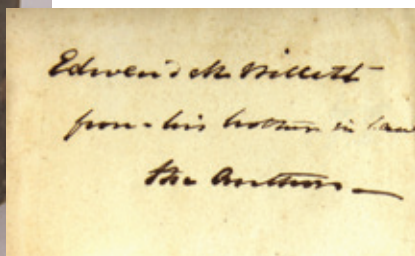 Edward M. Willett
from his brother in law
the Author